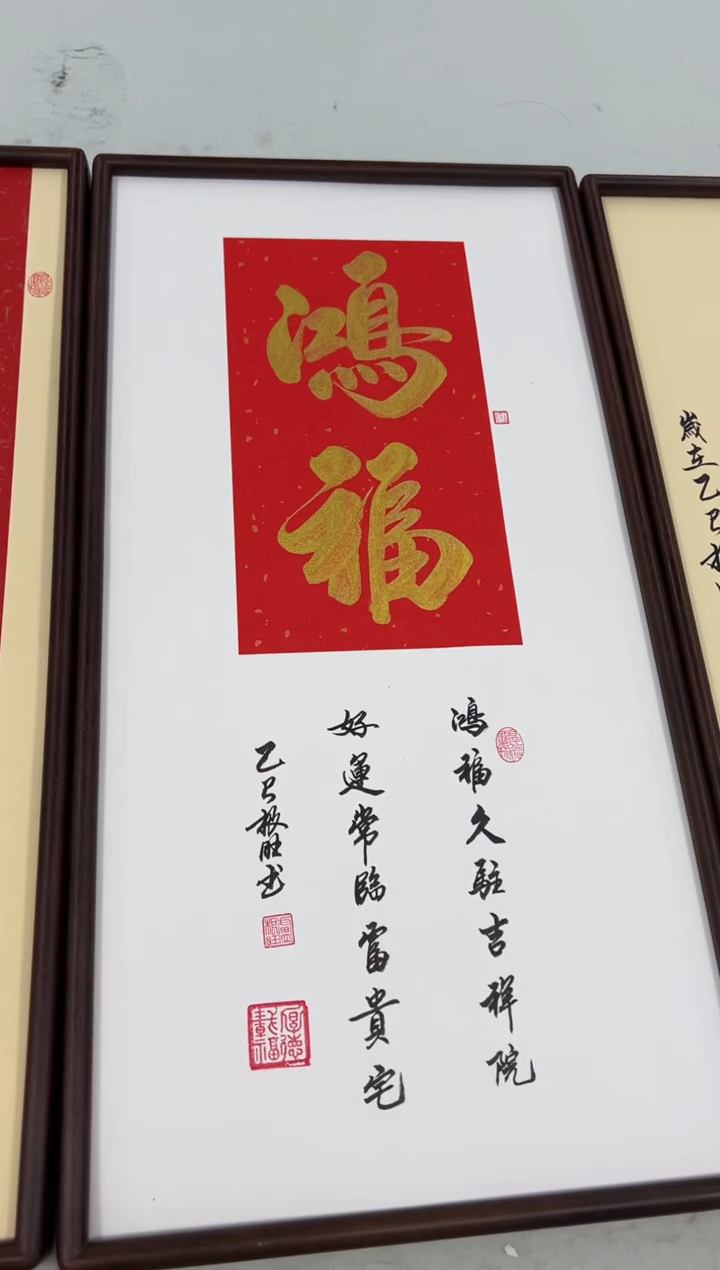 鴻福
鴻福久駐吉祥院
好運常臨富貴宅
乙巳
厚德載福
歲在乙巳